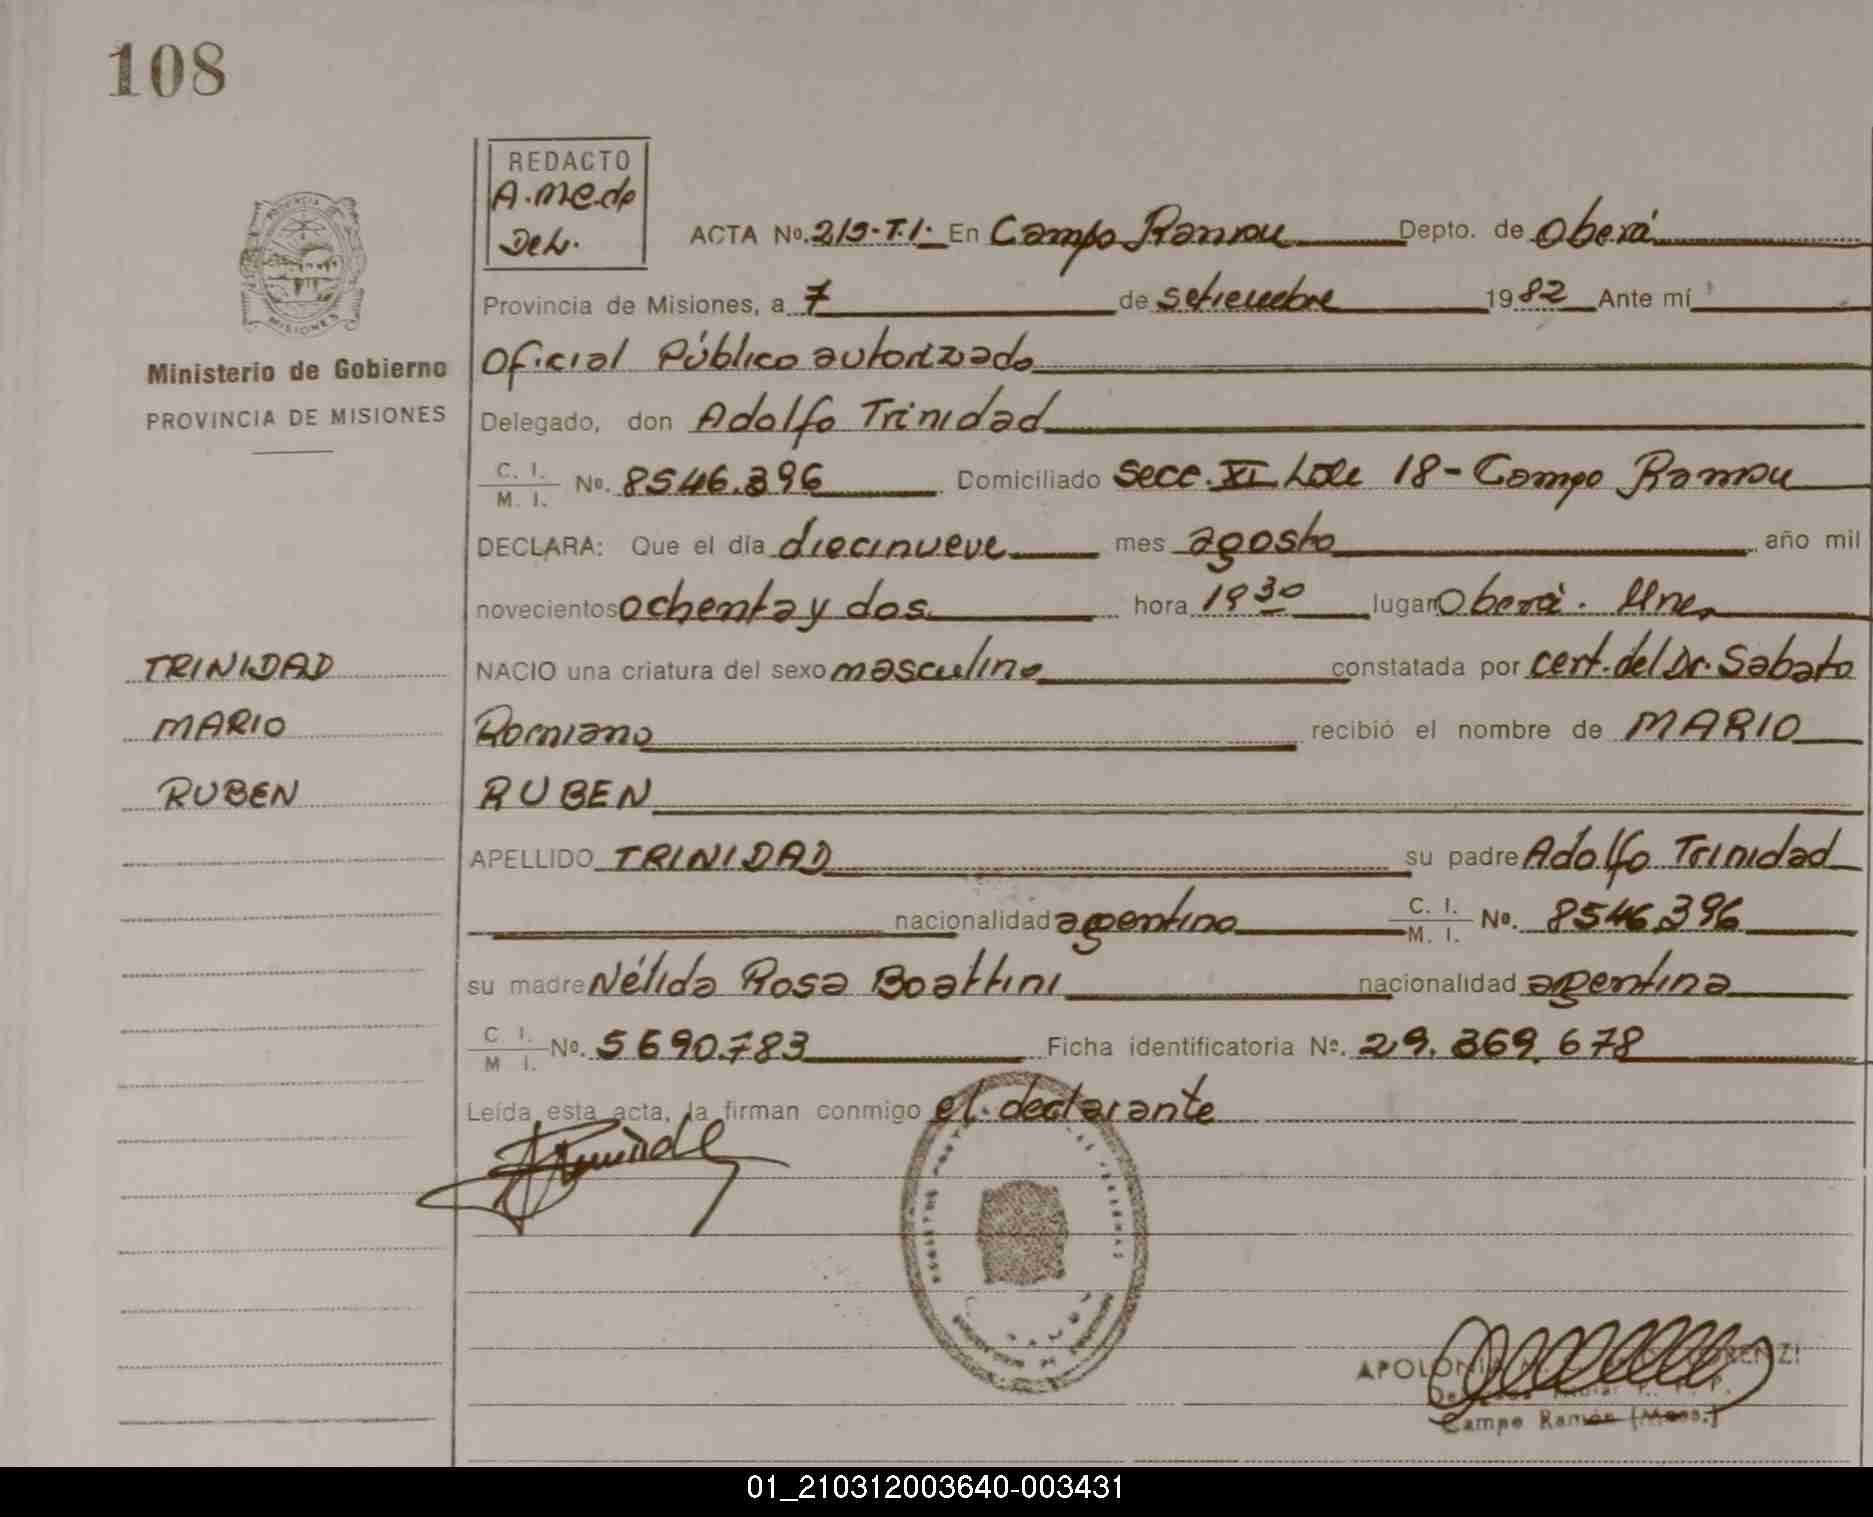 108
REDACTO
A. M e. de
DeL.
ACTA No. 219-T.1. En Campo Ramon Depto. de Oberá
Provincia de Misiones, a 7 de setiembre 1982 Ante mí
Oficial Público autorizado
Delegado, don Adolfo Trinidad
C. I.
M. I. No. 8546.396 Domiciliado Secc. XI Lote 18 - Campo Ramon
DECLARA: Que el día diecinueve mes agosto año mil
novecientos ochenta y dos hora 19 30 lugar Oberá. Mnes
NACIO una criatura del sexo masculino constatada por cert. del Dr. Sabato
Romano recibió el nombre de MARIO
RUBEN
APELLIDO TRINIDAD su padre Adolfo Trinidad
nacionalidad argentino C. I.
M. I. No. 8546.396
su madre Nélida Rosa Boattini nacionalidad argentina
C I.
M I. No. 5690.783 Ficha identificatoria No. 29.369.678
Leída esta acta, la firman conmigo el declarante
PROVINCIA
MISIONES
Ministerio de Gobierno
PROVINCIA DE MISIONES
TRINIDAD
MARIO
RUBEN
APOLONIA
Campo Ramón (Mnes.)
01_210312003640-003431